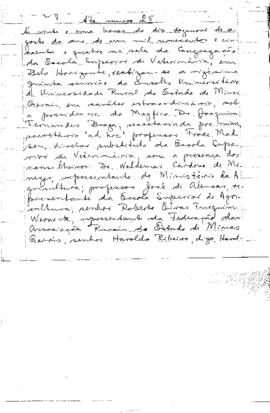 Ata número 25
Às vinte e uma horas do dia dezenove de a-
gosto do ano de um mil novecentos e cin-
coenta e quatro na sala da Congregação
da Escola Superior de Veterinária, em
Belo Horizonte, realizou-se a vigésima
quinta reunião do Conselho Universitário
d Universidade Rural do Estado de Minas
Gerais, em caráter extraordinário, sob
a presidência do Magfco. Dr. Joaquim
Fernandes Braga, secretariada por mim,
secretário "ad hoc", professor Frode Mad-
sen, diretor substituto da Escola Supe-
rior de Veterinária, com a presença dos
conselheiros: Dr. Waldemar Cardoso de Me-
nezes, representante do Ministério da A-
gricultura; professor José de Alencar, re-
presentante da Escola Superior de Agri-
cultura; senhor Roberto Eiras
Werneck, representante da Federação das
Associações Rurais do Estado de Minas
Gerais, senhor Haroldo Ribeiro, digo, Harol-